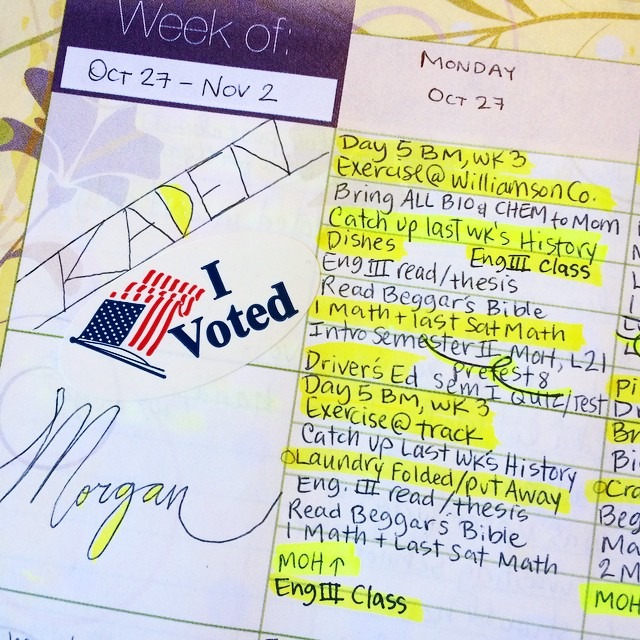 Week of:
OCT 27 - NOV 2
MONDAY
OCT 27
KADEN
I
Voted
Day 5 BM, WK 3
Exercise @ Williamson Co.
Bring ALL BIO & CHEM to Mom
Catch up last wk's History
Dishes EngIII Class
Eng III read/thesis
Read Beggar's Bible
1 Math + last Sat Math
Intro Semester II MOH, L21
pretest 8
Driver's Ed Sem I Quiz/Test
Morgan
Day 5 BM, WK 3
Exercise @ track
Catch up Last WK's History
Laundry Folded/put Away
Eng. III read/thesis
Read Beggar's Bible
1 Math + Last Sat Math
MOH ↑
Eng III Class
Pi
Br
Bi
Cra
Beg
Ma
2 M
MOH